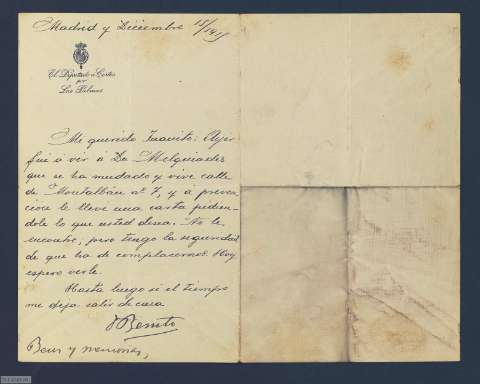 Madrid y Diciembre 15/1915
El Diputado a Cortes
por
Las Palmas
Me querido Juanito: Ayer
fué a ver á Dn Melquiades
que se ha mudado y vive calle
de Montalbán nº 7, y á preven
cioce le lleve una carta pidien-
dole lo que usted desea. No le
encontre, pero tengo la seguridad
de que ha de complacernos. Hoy
espero verle.
Hasta luego si el tiempo
me deja salir de casa
Benito
y memorias,